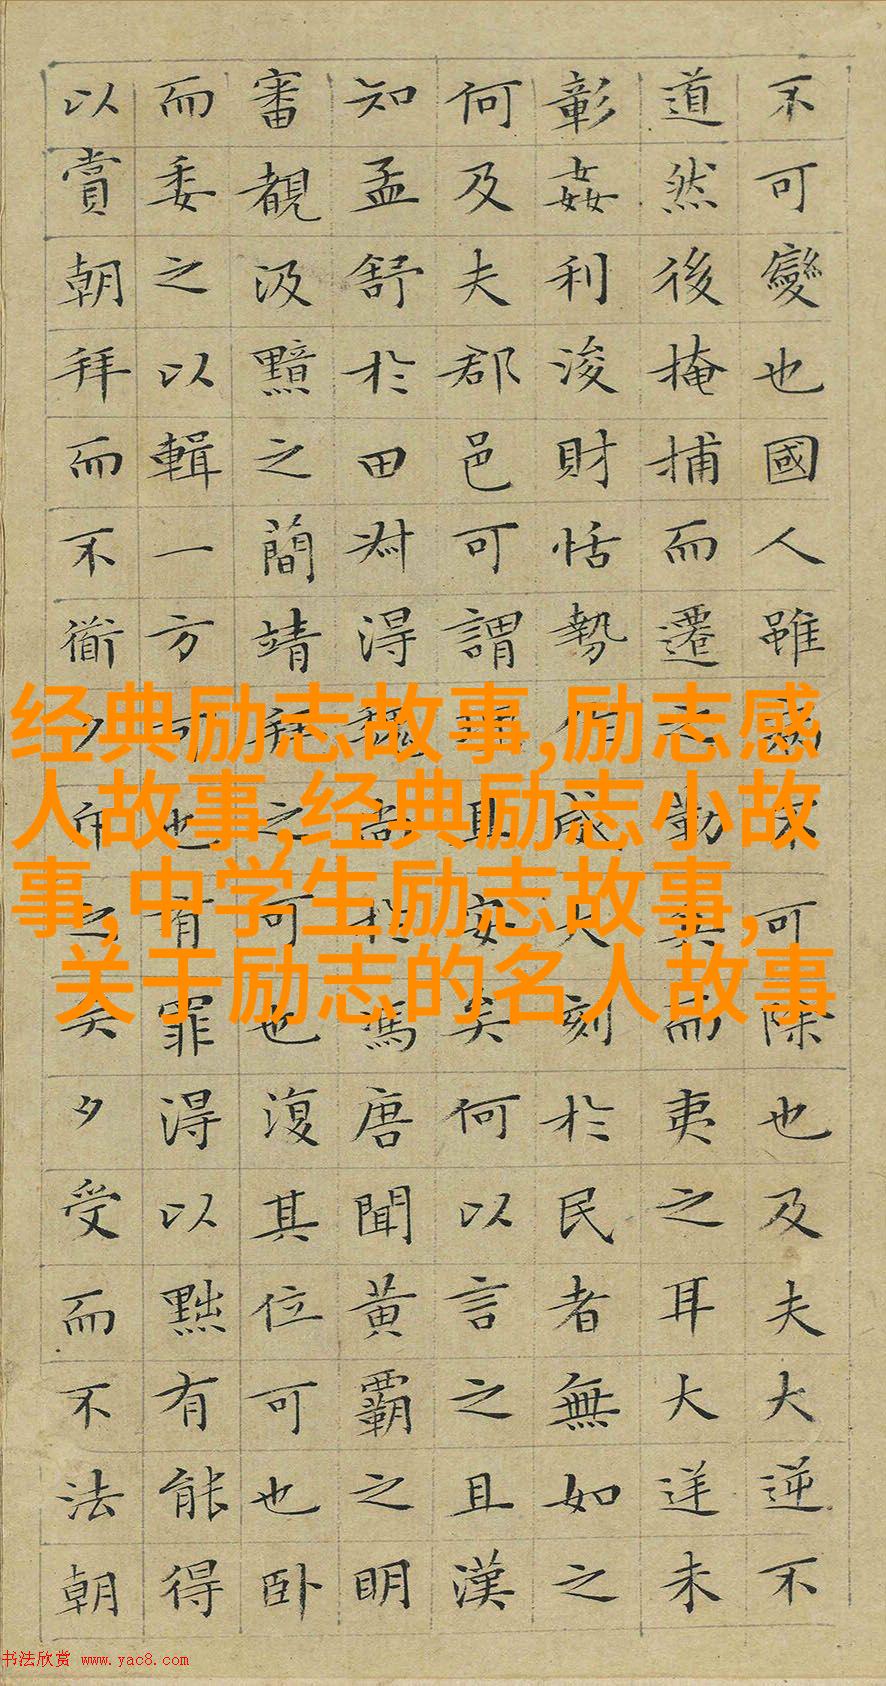 不可變也國人雖不可除也及夫大逆不
道然後掩捕而遷之勒兵而夷之耳大逆未
彰姦利浚財恬勢作威大刻於民者無如之
何及夫郡邑可謂理且安矣何以言之且漢
知孟舒於田叔得魏尚於馮唐聞黃霸之明
審覩汲黯之簡靖拜之可也復其位可也卧
而委之以輯一方可也有罪得以黜有能得
以賞朝拜而不衜夕斥之矣夕受而不法朝
经典励志故事,励志感
人故事,经典励志小故
事,中学生励志故事,
关于励志的名人故事
书法欣赏 www.yac8.com